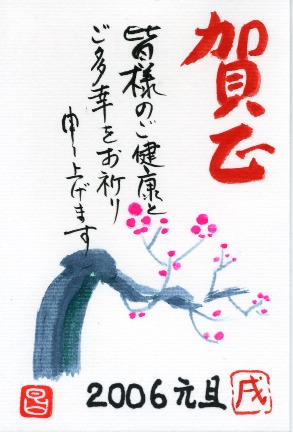 賀正
皆様のご健康と
ご多幸をお祈り
申し上げます
2006元旦
戌